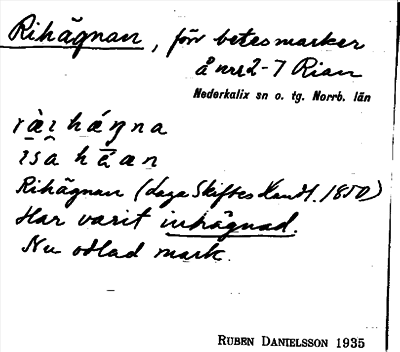 Rihägnan, för betesmarker
å nr 2-7 Rian
Nederkalix sn o. tg. Norrb. län
Rihägnan (Laga Skiftes Handl. 1850)
Har varit inhägnad.
Nu odlad mark.
RUBEN DANIELSSON 1935